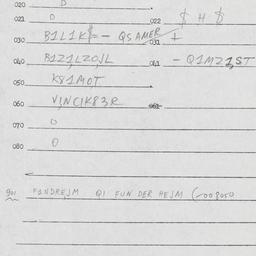 020 D
021 D 022 $ H $
030 B1L1K$ - QSAMER 031 I
040 B1Z1LZOJL 041 - Q1MZ1ST
050 K81MOT
060 VJNCIK83R 061
070 O
080 O
901 F1NDREJM Q1 FUN DER HEJM